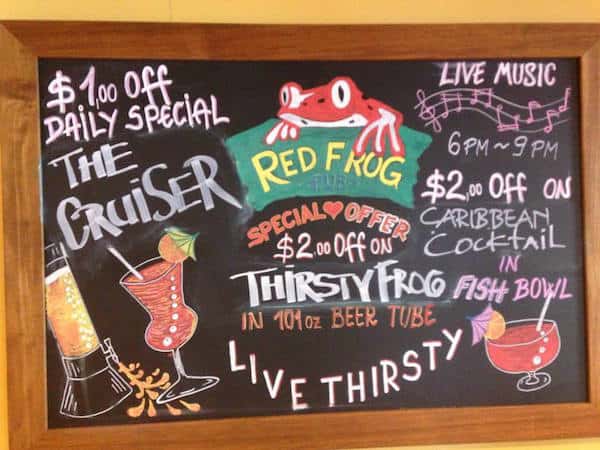 $1.00 Off
DAILY SPECIAL
THE
CRUISER
RED FROG
PUB
SPECIAL OFFER
$2.00 Off ON
THIRSTY FROG
IN 101oz BEER TUBE
LIVE THIRSTY
LIVE MUSIC
6PM~9PM
$2.00 Off ON
CARIBBEAN
COCKTAIL
IN
FISH BOWL